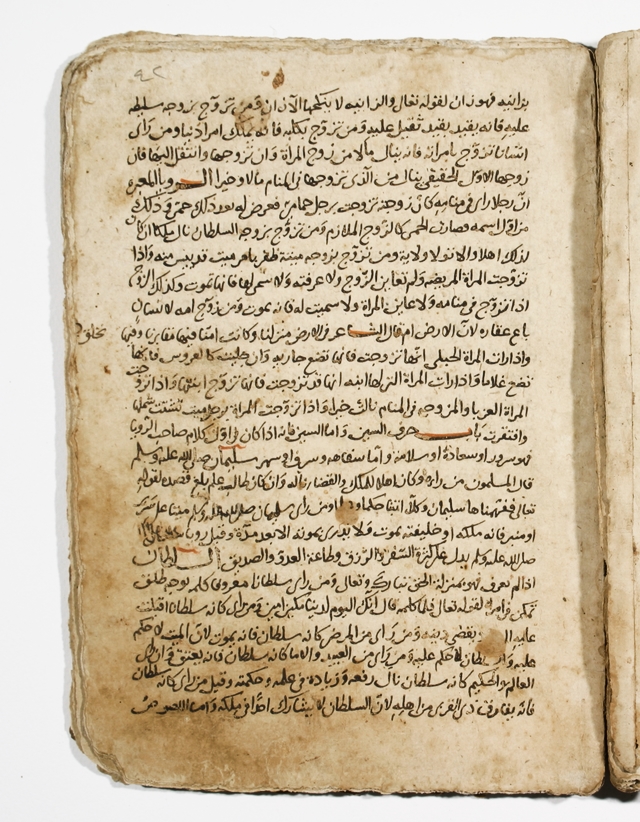 ٩٢
بزانية فهو زان لقوله تعالى والزانية لا ينكحها الا زان ومن تزوج بزوجه سلطه
عليه فانه يقيد بقيد ثقيل عليه ومن تزوج بكلبه فانه يملك امراة دنيا ومن راى
انسانا تزوج بامراته فانه ينال مالا من زوج المراة وان تزوجها وانتقل اليها فان
زوجها الاول الحقيقي ينال من الذي تزوجها في المنام مالا وخيرا الرويا المعبره
ان رجلا راى في منامه كان زوجته تزوجت برجل فعرض له بعد ذلك وذلك
من اول اسمه وصارت الحمى كالزوج الملازم ومن تزوج بزوجه السلطان نال ملكا ان كان
لذلك اهلا والا تولا ولاية ومن تزوج بزوجه ميتة ظفر بامر ميت قد يبس منه واذا
تزوجت المراة المريضه ولم تعاين الزوج ولا عرفته ولا سمي لها فانها تموت وكذلك الزوج
اذا تزوج في منامه ولا عاين المراة ولا سميت له فانه يموت ومن زوج امه لانسان
باع عقاره لان الارض ام قال الشاعر في الارض منزلنا وكانت امنا فيها مقابرنا وفيها
نخلق
واذا رات المراة الحبلى انها تزوجت فانها تضع جاريه وان جليت كالعروس فانها
تضع غلاما واذا رات المراة التي لها ابنه انها قد تزوجت فانها تزوج ابنتها واذا تزوجت
المراة العزبا والمزوجه في المنام نالت خيرا واذا تزوجت المراة برجل ميت تشتت شملها
وافتقرت باب حرف السين واما السين فانه اذا كان في اول كلام صاحب الرويا
فهو سرور او سعادة او سلامة واما سفاهه وسرف او سهر سليمان صلى الله عليه وسلم
قال المسلمون من راه وكان اهلا للملك والقضا ناله وان كان طالب علم بلغ قصده لقوله
تعالى ففهمناها سليمان وكلا اتينا حكما وعلما ومن راى سليمان صلى الله عليه وسلم ميتا على سرير
او منبر فانه ملكه او خليفته يموت ولا يدرى بموته الا بعد مدة وقيل رويا سليمان
صلى الله عليه وسلم يدل على كثرة السفر في الرزق وطاعة العدو والصديق السلطان
اذا لم يعرف فهو بمنزلة الحق تبارك وتعالى ومن راى سلطانا معروفا كلمه بوجه طلق
تمكن في امره لقوله تعالى فلما كلمه قال انك اليوم لدينا مكين امين ومن راى كانه سلطانا اقبلت
عليه يقضي دينه ومن راى من المرضى كانه سلطان فانه يموت لان الميت لا حكم
عليه والسلطان لا حكم عليه ومن راى من العبيد والاما كانه سلطان فانه يعتق وان راى
العالم والحكيم كانه سلطان نال رفعه وزيادة في علمه وحكمته وقيل من راى كانه سلطان
فانه يفارق ذوي القربى من اهله لان السلطان لا يشارك احدا في ملكه واما اللصوص